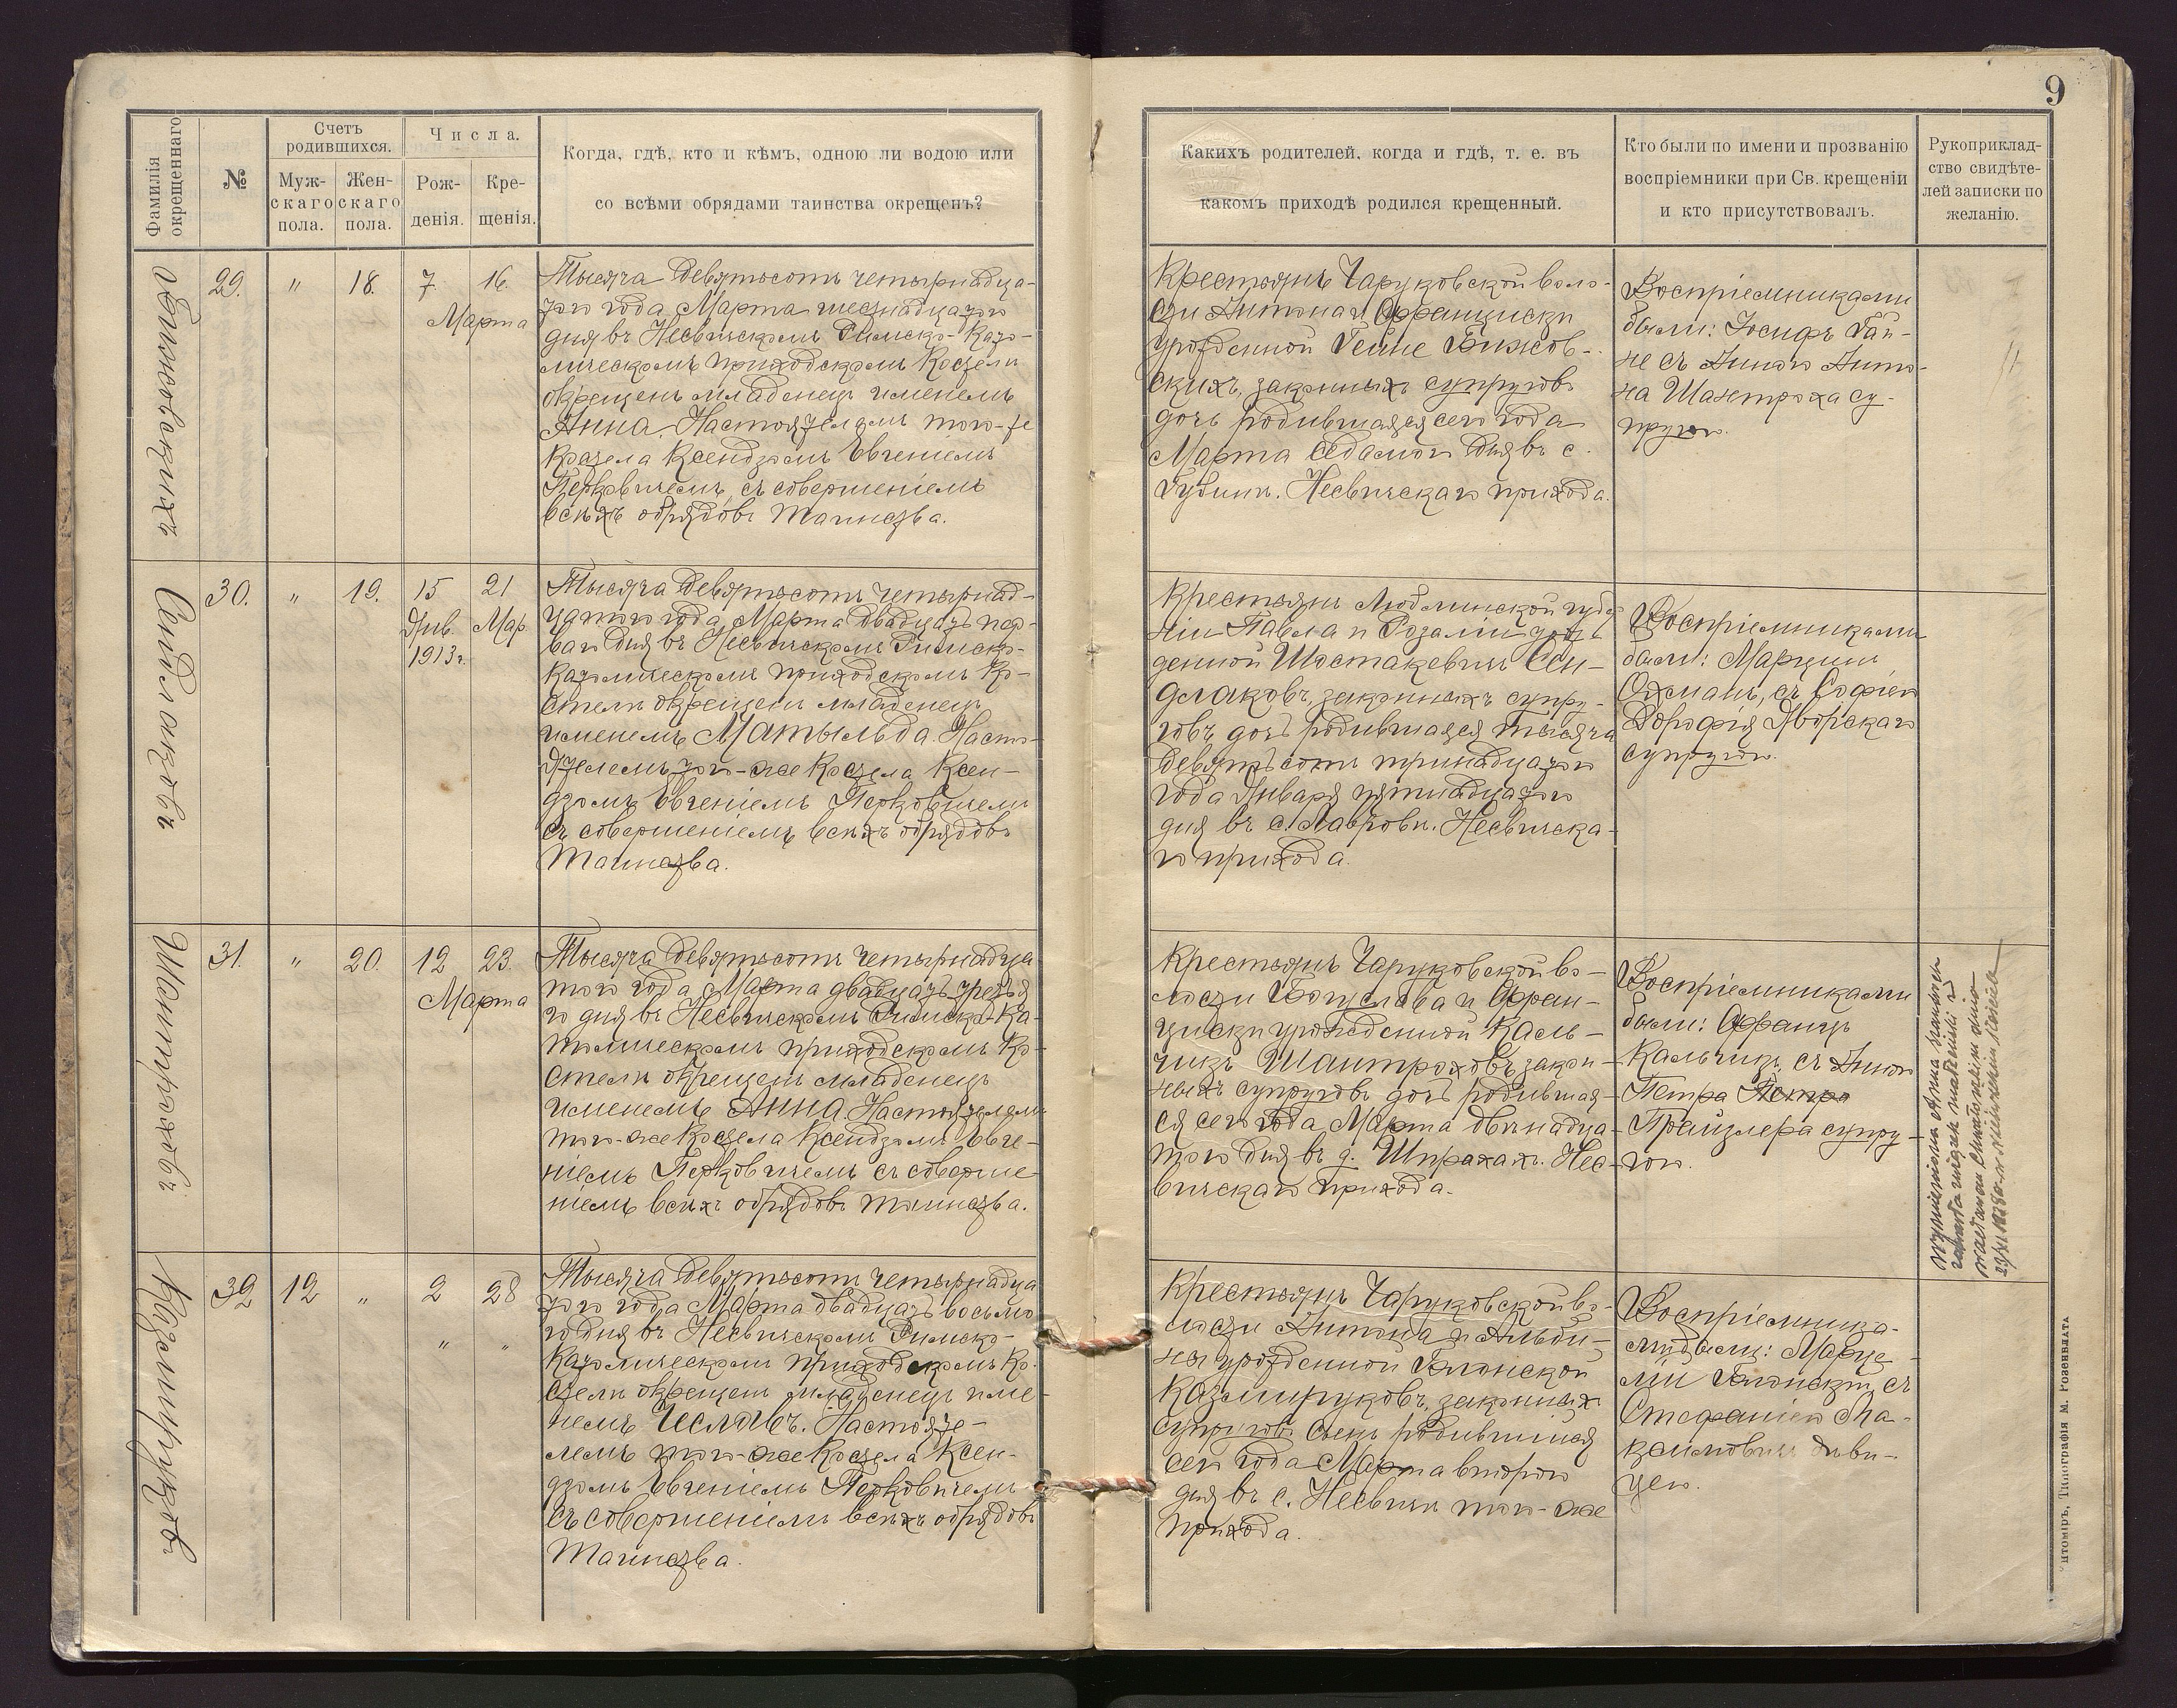 9
Фамилія окрещеннаго
№
Счетъ родившихся.
Муж-
скаго
пола.
Жен-
скаго
пола.
Числа.
Рож-
денія.
Кре-
щенія.
Когда, гдѣ, кто и кѣмъ, одною ли водою или
со всѣми обрядами таинства окрещенъ?
Какихъ родителей, когда и гдѣ, т. е. въ
какомъ приходѣ родился крещенный.
Кто были по имени и прозванію
воспріемники при Св. крещеніи
и кто присутствовалъ.
Рукоприклад-
ство свидѣте-
лей записки по
желанію.
29. " 18. 7. 16.
Марта
Тысяча девятьсотъ четырнадца-
таго года Марта шестнадцатаго
дня въ Несвичскомъ Римско-Като-
лическомъ приходскомъ Костелѣ
окрещенъ младенецъ именемъ
Анна. Настоятелемъ того-же
Костела Ксендзомъ Евгеніемъ
Перковичемъ, съ совершеніемъ
всѣхъ обрядовъ Таинства.
Крестьянъ Чаруковской воло-
сти Антона и Францишки
урожденной Гейне
скихъ, законныхъ супруговъ
дочь родившаяся сего года
Марта седьмого дня въ с.
Губинѣ. Несвичскаго прихода.
Воспріемниками
были: Іосифъ Гай-
не съ Анною Анто-
на Шантроха су-
пругою.
Сендлаковъ
30. " 19. 15 21
Янв. Мар.
1913 г.
Тысяча девятьсотъ четырнад-
цатаго года Марта двадцать пер-
ваго дня въ Несвичскомъ Римско-
Католическомъ приходскомъ Ко-
стелѣ окрещенъ младенецъ
именемъ Матыльда. Насто-
ятелемъ того-же Костела Ксен-
дзомъ Евгеніемъ Перковичемъ
съ совершеніемъ всѣхъ обрядовъ
Таинства.
Крестьянъ Люблинской губер
ніи Павла и Розаліи урож
денной Шостакевичъ Сен-
длаковъ, законныхъ супру-
говъ дочь родившаяся тысяча
девятьсотъ тринадцатаго
года Января пятнадцатаго
дня въ с. Лавровѣ. Несвичска-
го прихода.
Воспріемниками
были: Марцинъ
Охманъ, съ Софіею
Дорофія Яворскаго
супругою.
Шантроховъ
31. " 20. 12 23.
Марта
Тысяча девятьсотъ четырнадца
таго года Марта двадцать третья
го дня въ Несвичскомъ Римско-Ка-
толическомъ приходскомъ Ко-
стелѣ окрещенъ младенецъ
именемъ Анна. Настоятелемъ
того-же Костела Ксендзомъ Евге-
ніемъ Перковичемъ съ соверше-
ніемъ всѣхъ обрядовъ таинства.
Крестьянъ Чаруковской во-
лости Богуслава и Фран-
цишки урожденной Каль-
чицъ Шантроховъ, закон-
ныхъ супруговъ дочь родившая-
ся сего года Марта двѣнадца-
таго дня въ д. Шпрахахъ. Нес-
вичскаго прихода.
Воспріемниками
были: Францъ
Кальчицъ, съ Анною
Петра Петра
Грайзлера супру-
гою.
Wymieniona Anna
zawarła związek małżeński z
Казмируковъ
32 12 " 2 28
" "
Тысяча девятьсотъ четырнадца
таго года Марта двадцать восьмо
го дня въ Несвичскомъ Римско-
Католическомъ приходскомъ Ко-
стелѣ окрещенъ младенецъ име-
немъ Чеславъ. Настояте-
лемъ того-же Костела Ксен-
дзомъ Евгеніемъ Перковичемъ
съ совершеніемъ всѣхъ обрядовъ
Таинства.
Крестьянъ Чаруковской во-
лости Антона и Альби-
ны урожденной
Казмируковъ, законныхъ
супруговъ сынъ родившійся
сего года Марта второго
дня въ с. Несвичѣ того-же
прихода.
Воспріемника-
ми были: Марце-
лій съ
Стефаніею Ма-
ксимовичъ дѣви-
цею.
итоміръ, Типографія М. Розенблата